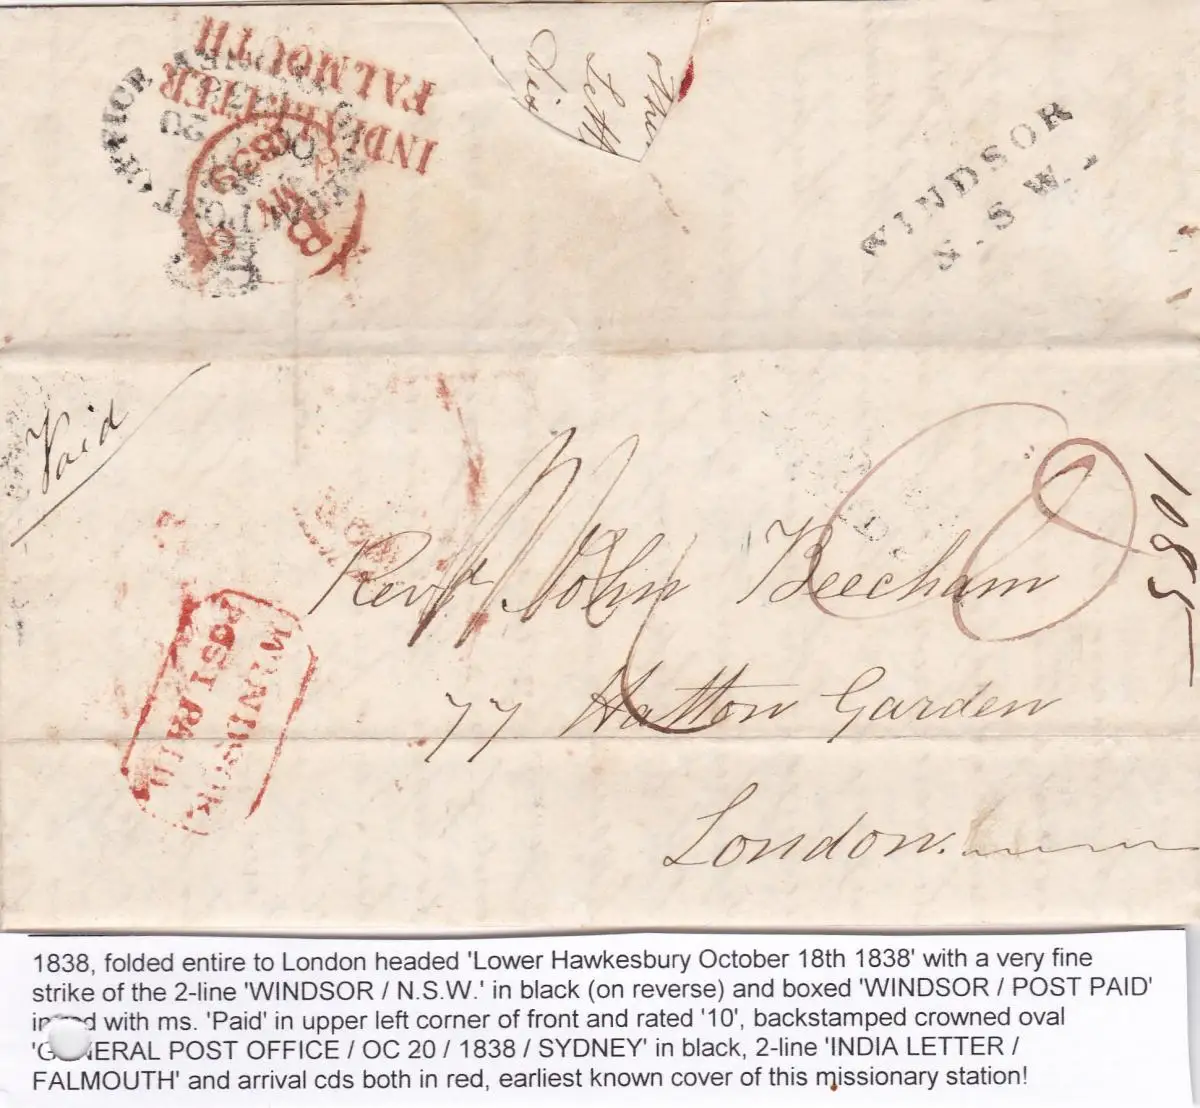 INDIA LETTER
FALMOUTH
POST OFFICE
20
1839
WINDSOR
N.S.W.
Paid
1085
Revd. John Beecham
77 Hatton Garden
London.
WINDSOR
POST PAID
1838, folded entire to London headed 'Lower Hawkesbury October 18th 1838' with a very fine
strike of the 2-line 'WINDSOR / N.S.W.' in black (on reverse) and boxed 'WINDSOR / POST PAID'
in red with ms. 'Paid' in upper left corner of front and rated '10', backstamped crowned oval
'GENERAL POST OFFICE / OC 20 / 1838 / SYDNEY' in black, 2-line 'INDIA LETTER /
FALMOUTH' and arrival cds both in red, earliest known cover of this missionary station!